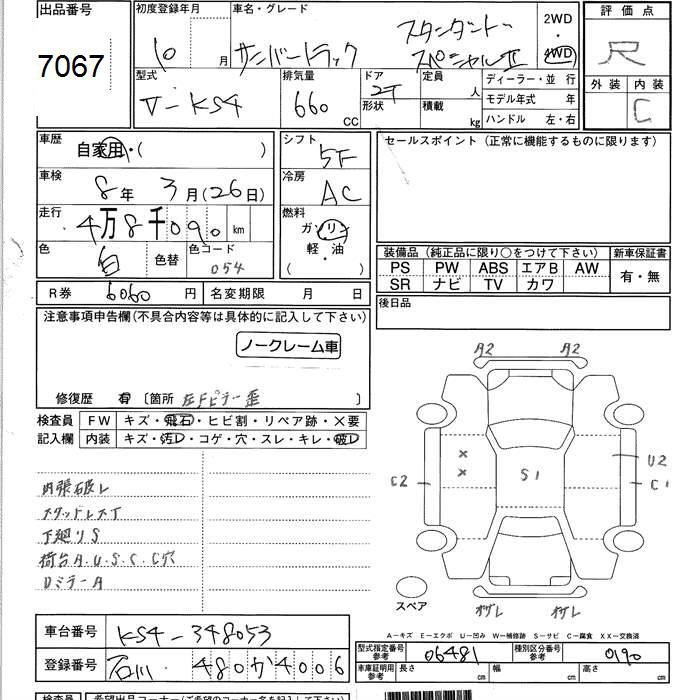 出品番号
7067
初度登録年月
10 月
車名・グレード
サンバートラック
スタンダード
スペシャルⅡ
2WD
・
4WD
評価点
R
外装 内装
C
型式
V-KS4
排気量
660 CC
ドア
2T
形状
定員
人
積載
kg
ディーラー・並 行
モデル年式 年
ハンドル 左・右
車歴
自家用・( )
車検
8年 3月(26日)
走行
4万8千090 km
色
白
色替
色コード
054
シフト
5F
冷房
AC
燃料
ガソリン
軽・油
( )
セールスポイント (正常に機能するものに限ります)
装備品 (純正品に限り○をつけて下さい)
PS PW ABS エアB AW
SR ナビ TV カワ
新車保証書
有・無
後日品
R券 6060 円
名変期限 月 日
注意事項申告欄(不具合内容等は具体的に記入して下さい)
ノークレーム車
修復歴 有 〔箇所 左Fピラー歪 〕
検査員
記入欄
FW キズ・飛石・ヒビ割・リペア跡・×要
内装 キズ・汚レ・コゲ・穴・スレ・キレ・破レ
内張破レ
スタッドレスT
下廻りS
荷台A.U.S.C.C穴
Dミラー A
A2 A2
C2
×
×
S1
U2
C1
スペア
オサレ オサレ
A-キズ E-エクボ U-凹み W-補修跡 S-サビ C-腐食 XX-交換済
車台番号 KS4-348053
登録番号 石川 480か4006
型式指定番号
参考
06481
種別区分番号
参考
0190
車庫証明用
参考
長さ cm 幅 cm 高さ cm
検査員 希望出品コーナー(ご希望のコーナー名を記入して下さい)